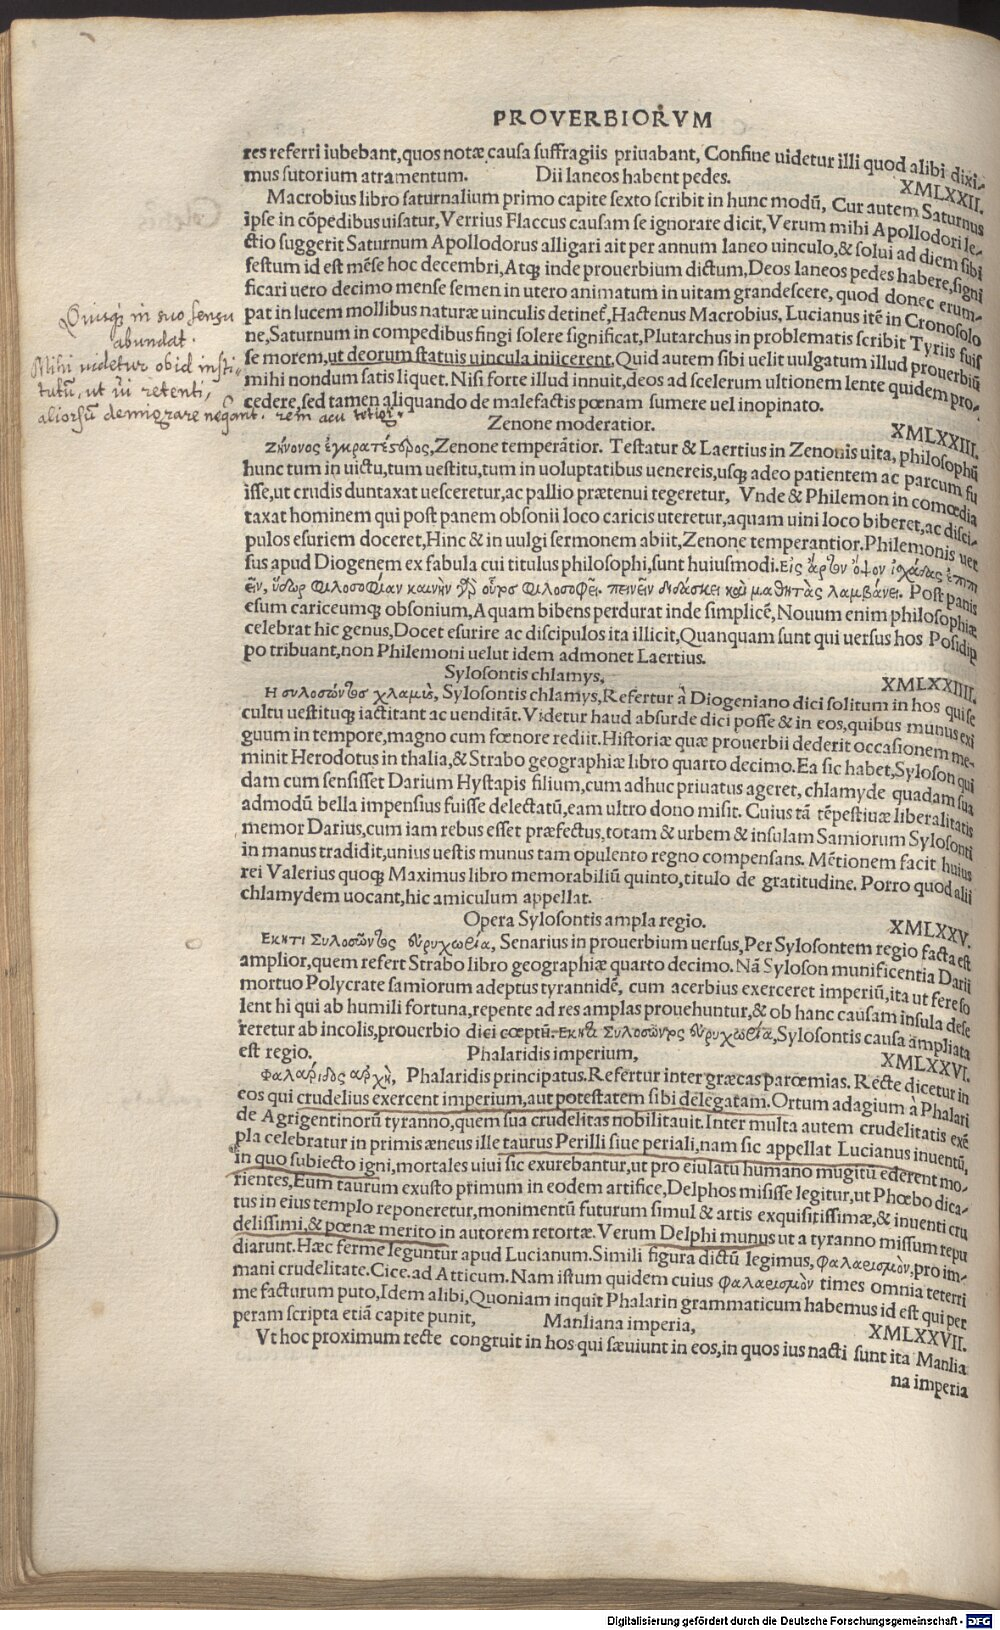 PROVERBIORVM
res referri iubebant,quos notæ causa suffragiis priuabant, Confine uidetur illi quod alibi dixi-
mus sutorium atramentum. Dii laneos habent pedes. XMLXXII.
Macrobius libro saturnalium primo capite sexto scribit in hunc modũ, Cur autem Saturnus
ipse in cõpedibus uisatur, Verrius Flaccus causam se ignorare dicit, Verum mihi Apollodori le-
ctio suggerit Saturnum Apollodorus alligari ait per annum laneo uinculo,& solui ad diem sibi
festum id est mẽse hoc decembri, Atqꝫ inde prouerbium dictum, Deos laneos pedes habere, signi
ficari uero decimo mense semen in utero animatum in uitam grandescere, quod donec erum-
pat in lucem mollibus naturæ uinculis detinet, Hactenus Macrobius, Lucianus itẽ in Cronosolo
ne, Saturnum in compedibus fingi solere significat, Plutarchus in problematis scribit Tyriis fuis
se morem, ut deorum statuis uincula iniicerent. Quid autem sibi uelit uulgatum illud prouerbiũ
mihi nondum satis liquet. Nisi forte illud innuit, deos ad scelerum ultionem lente quidem pro-
cedere, sed tamen aliquando de malefactis pœnam sumere uel inopinato.
Quisqꝫ in suo sensu
abundat.
Mihi uidetur ob id insti-
tutũ, ut ij retenti,
aliorsũ demigrare neq̃ant. rem acu tetigi.
Zenone moderatior. XMLXXIII.
Ζήνονος ἐγκρατέστερος, Zenone temperãtior. Testatur & Laertius in Zenonis uita, philosophũ
hunc tum in uictu, tum uestitu, tum in uoluptatibus uenereis, usqꝫ adeo patientem ac parcum fu
isse, ut crudis duntaxat uesceretur, ac pallio prætenui tegeretur, Vnde & Philemon in comœdia
taxat hominem qui post panem obsonii loco caricis uteretur, aquam uini loco biberet, ac disci-
pulos esuriem doceret, Hinc & in uulgi sermonem abiit, Zenone temperantior. Philemonis uer
sus apud Diogenem ex fabula cui titulus philosophi, sunt huiusmodi. Εἰς ἄρτον ὄψον ἰσχάδας ἐπιπι
εῖν, ὕδωρ φιλοσοφίαν καινὴν γὰρ οὗτος φιλοσοφεῖ. πεινεῖν διδάσκει καὶ μαθητὰς λαμβάνει. Post panis
esum cariceumqꝫ obsonium, Aquam bibens perdurat inde simplicẽ, Nouum enim philosophiæ
celebrat hic genus, Docet esurire ac discipulos ita illicit, Quanquam sunt qui uersus hos Posidip
po tribuant, non Philemoni uelut idem admonet Laertius.
Sylosontis chlamys, XMLXXIIII.
Η συλοσῶντος χλαμὶς, Sylosontis chlamys, Refertur à Diogeniano dici solitum in hos qui se
cultu uestituqꝫ iactitant ac uenditãt. Videtur haud absurde dici posse & in eos, quibus munus exi
guum in tempore, magno cum fœnore rediit. Historiæ quæ prouerbii dederit occasionem me-
minit Herodotus in thalia,& Strabo geographiæ libro quarto decimo. Ea sic habet, Syloson qui
dam cum sensisset Darium Hystapis filium, cum adhuc priuatus ageret, chlamyde quadam sua
admodũ bella impensius fuisse delectatũ, eam ultro dono misit. Cuius tã tẽpestiuæ liberalitatis
memor Darius, cum iam rebus esset præfectus, totam & urbem & insulam Samiorum Sylosonti
in manus tradidit, unius uestis munus tam opulento regno compensans. Mẽtionem facit huius
rei Valerius quoqꝫ Maximus libro memorabiliũ quinto, titulo de gratitudine. Porro quod alii
chlamydem uocant, hic amiculum appellat.
Opera Sylosontis ampla regio. XMLXXV.
Εκητι Συλοσῶντος εὐρυχωρία, Senarius in prouerbium uersus, Per Sylosontem regio facta est
amplior, quem refert Strabo libro geographiæ quarto decimo. Nã Syloson munificentia Darii
mortuo Polycrate samiorum adeptus tyrannidẽ, cum acerbius exerceret imperiũ, ita ut fere so
lent hi qui ab humili fortuna, repente ad res amplas prouehuntur,& ob hanc causam insula dese
reretur ab incolis, prouerbio dici cœptũ. Εκητι Συλοσῶντος εὐρυχωρία, Sylosontis causa ãmpliata
est regio. Phalaridis imperium, XMLXXVI.
Φαλαρίδος ἀρχὴ, Phalaridis principatus. Refertur inter græcas parœmias. Recte dicetur in
eos qui crudelius exercent imperium, aut potestatem sibi delegatam. Ortum adagium à Phalari
de Agrigentinorũ tyranno, quem sua crudelitas nobilitauit. Inter multa autem crudelitatis exẽ
pla celebratur in primis æneus ille taurus Perilli siue periali, nam sic appellat Lucianus inuentũ,
in quo subiecto igni, mortales uiui sic exurebantur, ut pro eiulatu humano mugitũ ederent mo-
rientes, Eum taurum exusto primum in eodem artifice, Delphos misisse legitur, ut Phœbo dica-
tus in eius templo reponeretur, monimentũ futurum simul & artis exquisitissimæ,& inuenti cru
delissimi,& pœnæ merito in autorem retortæ. Verum Delphi munus ut a tyranno missum repu
diarunt. Hæc ferme leguntur apud Lucianum. Simili figura dictũ legimus, φαλαρισμὸν, pro im-
mani crudelitate. Cice. ad Atticum. Nam istum quidem cuius φαλαρισμὸν times omnia teterri
me facturum puto, Idem alibi, Quoniam inquit Phalarin grammaticum habemus id est qui per
peram scripta etiã capite punit, Manliana imperia, XMLXXVII.
Vt hoc proximum recte congruit in hos qui sæuiunt in eos, in quos ius nacti sunt ita Manlia
na imperia
Digitalisierung gefördert durch die Deutsche Forschungsgemeinschaft - DFG